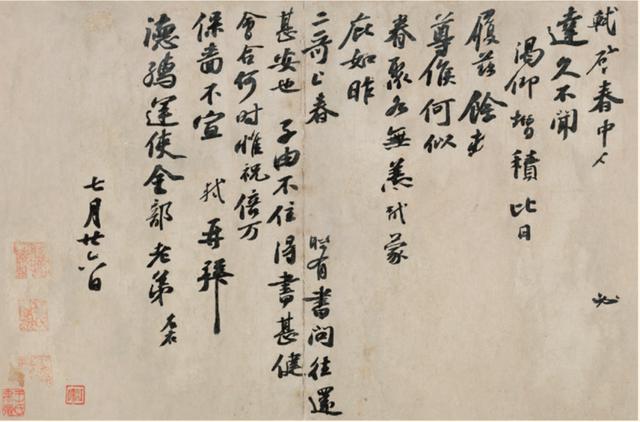 軾啓春中 必
達久不聞
渴仰增積比日
履茲餘
尊候何似
眷聚各無恙軾蒙
庇如昨
二哥上春 時有書問往還
甚安也 子由不住得書甚健
會合何時惟祝倍万
保嗇不宣 軾再拜
德孺運使金部老弟 左右
七月廿六日